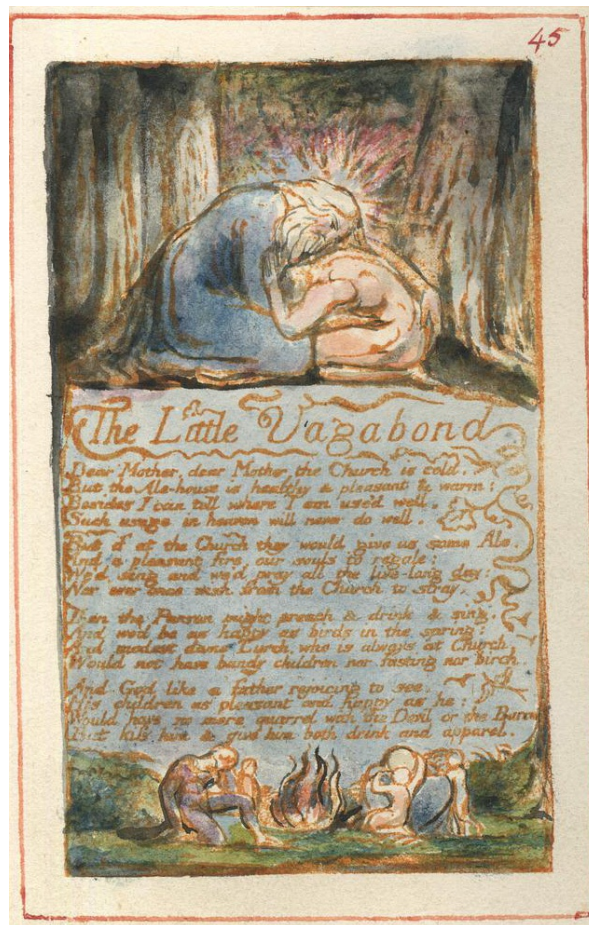 45
The Little Vagabond
Dear Mother, dear Mother, the Church is cold.
But the Ale-house is healthy & pleasant & warm:
Besides I can tell where I am use'd well.
Such usage in heaven will never do well.
But if at the Church they would give us some Ale.
And a pleasant fire, our souls to regale:
We'd sing and we'd pray all the live-long day:
Nor ever once wish from the Church to stray.
Then the Parson might preach & drink & sing.
And we'd be as happy as birds in the spring:
And modest dame Lurch, who is always at Church,
Would not have bandy children nor fasting nor birch.
And God like a father rejoicing to see.
His children as pleasant and happy as he:
Would have no more quarrel with the Devil or the Barrel
But kiss him & give him both drink and apparel.